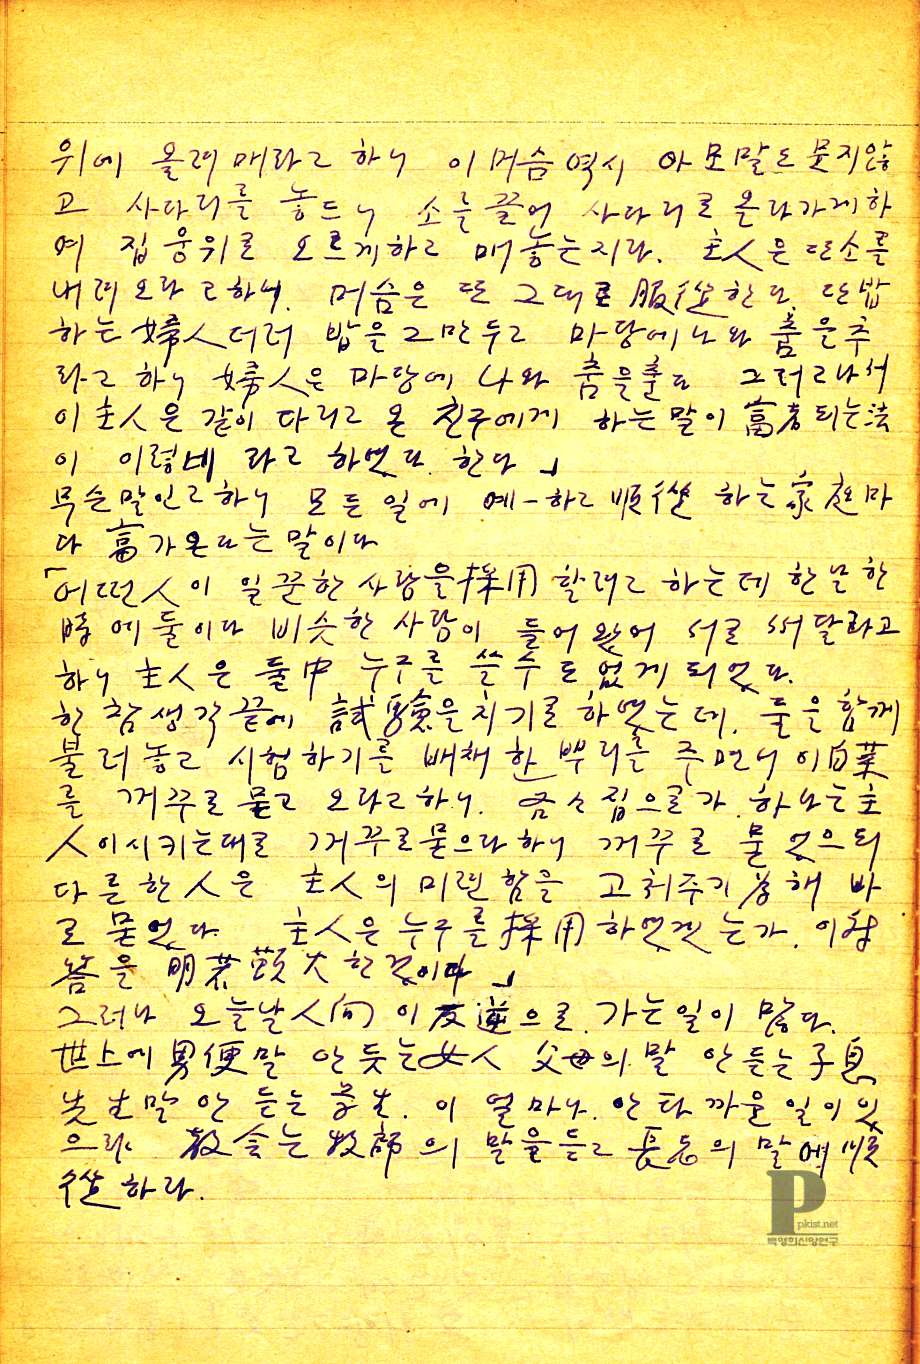 위에 올려 매라고 하니 이 머슴 역시 아모말도 묻지않
고 사다리를 놓드니 소를 끌어 사다리로 올라가게하
여 집웅위로 오르게하고 매놓는지라. 主人은 또소를
내려오라고하니. 머슴은 또 그대로 服從한다. 또밥
하는 婦人더러 밥을 그만두고 마당에 나와 춤을추
라고 하니 婦人은 마당에 나와 춤을춘다 그러고나서
이 主人은 같이 다리고 온 친구에게 하는말이 富者되는法
이 이렇네 라고 하였다. 한다」
무슨말인고하니 모든일에 예-하고 順從 하는 家庭마
다 富가온다는 말이다
「어떤人이 일꾼한사람을 採用 할려고 하는데 한날한
時에 둘이다 비슷한 사람이 들어 왔어 서로 써달라고
하니 主人은 둘中 누구를 쓸수도 없게 되었다.
한참생각끝에 試驗을치기로 하였는데. 둘을 함께
불러놓고 시험하기를 배채 한 뿌리를 주면서 이 白菜
를 꺼꾸로 묻고 오라고하니. 집으로가 하나는 主
人이시키는대로 꺼꾸로묻으라하니 꺼꾸로 묻었으되
다른한人은 主人의 미련함을 고처주기 爲해 바
로 묻었다. 主人은 누구를 採用 하였겠는가. 이 對
答을 明若 大한것이다」
그러나 오늘날 人間이 反逆으로 가는일이 많다.
世上에 男便말 안듯는 女人 父母의 말 안듣는 子息
先生말 안 듣는 學生. 이 얼마나 안타까울 일이 있
으랴 敎会는 牧師의 말을듣고 長老의 말에 順
從하라.
P
pkist.net
백영희신앙연구